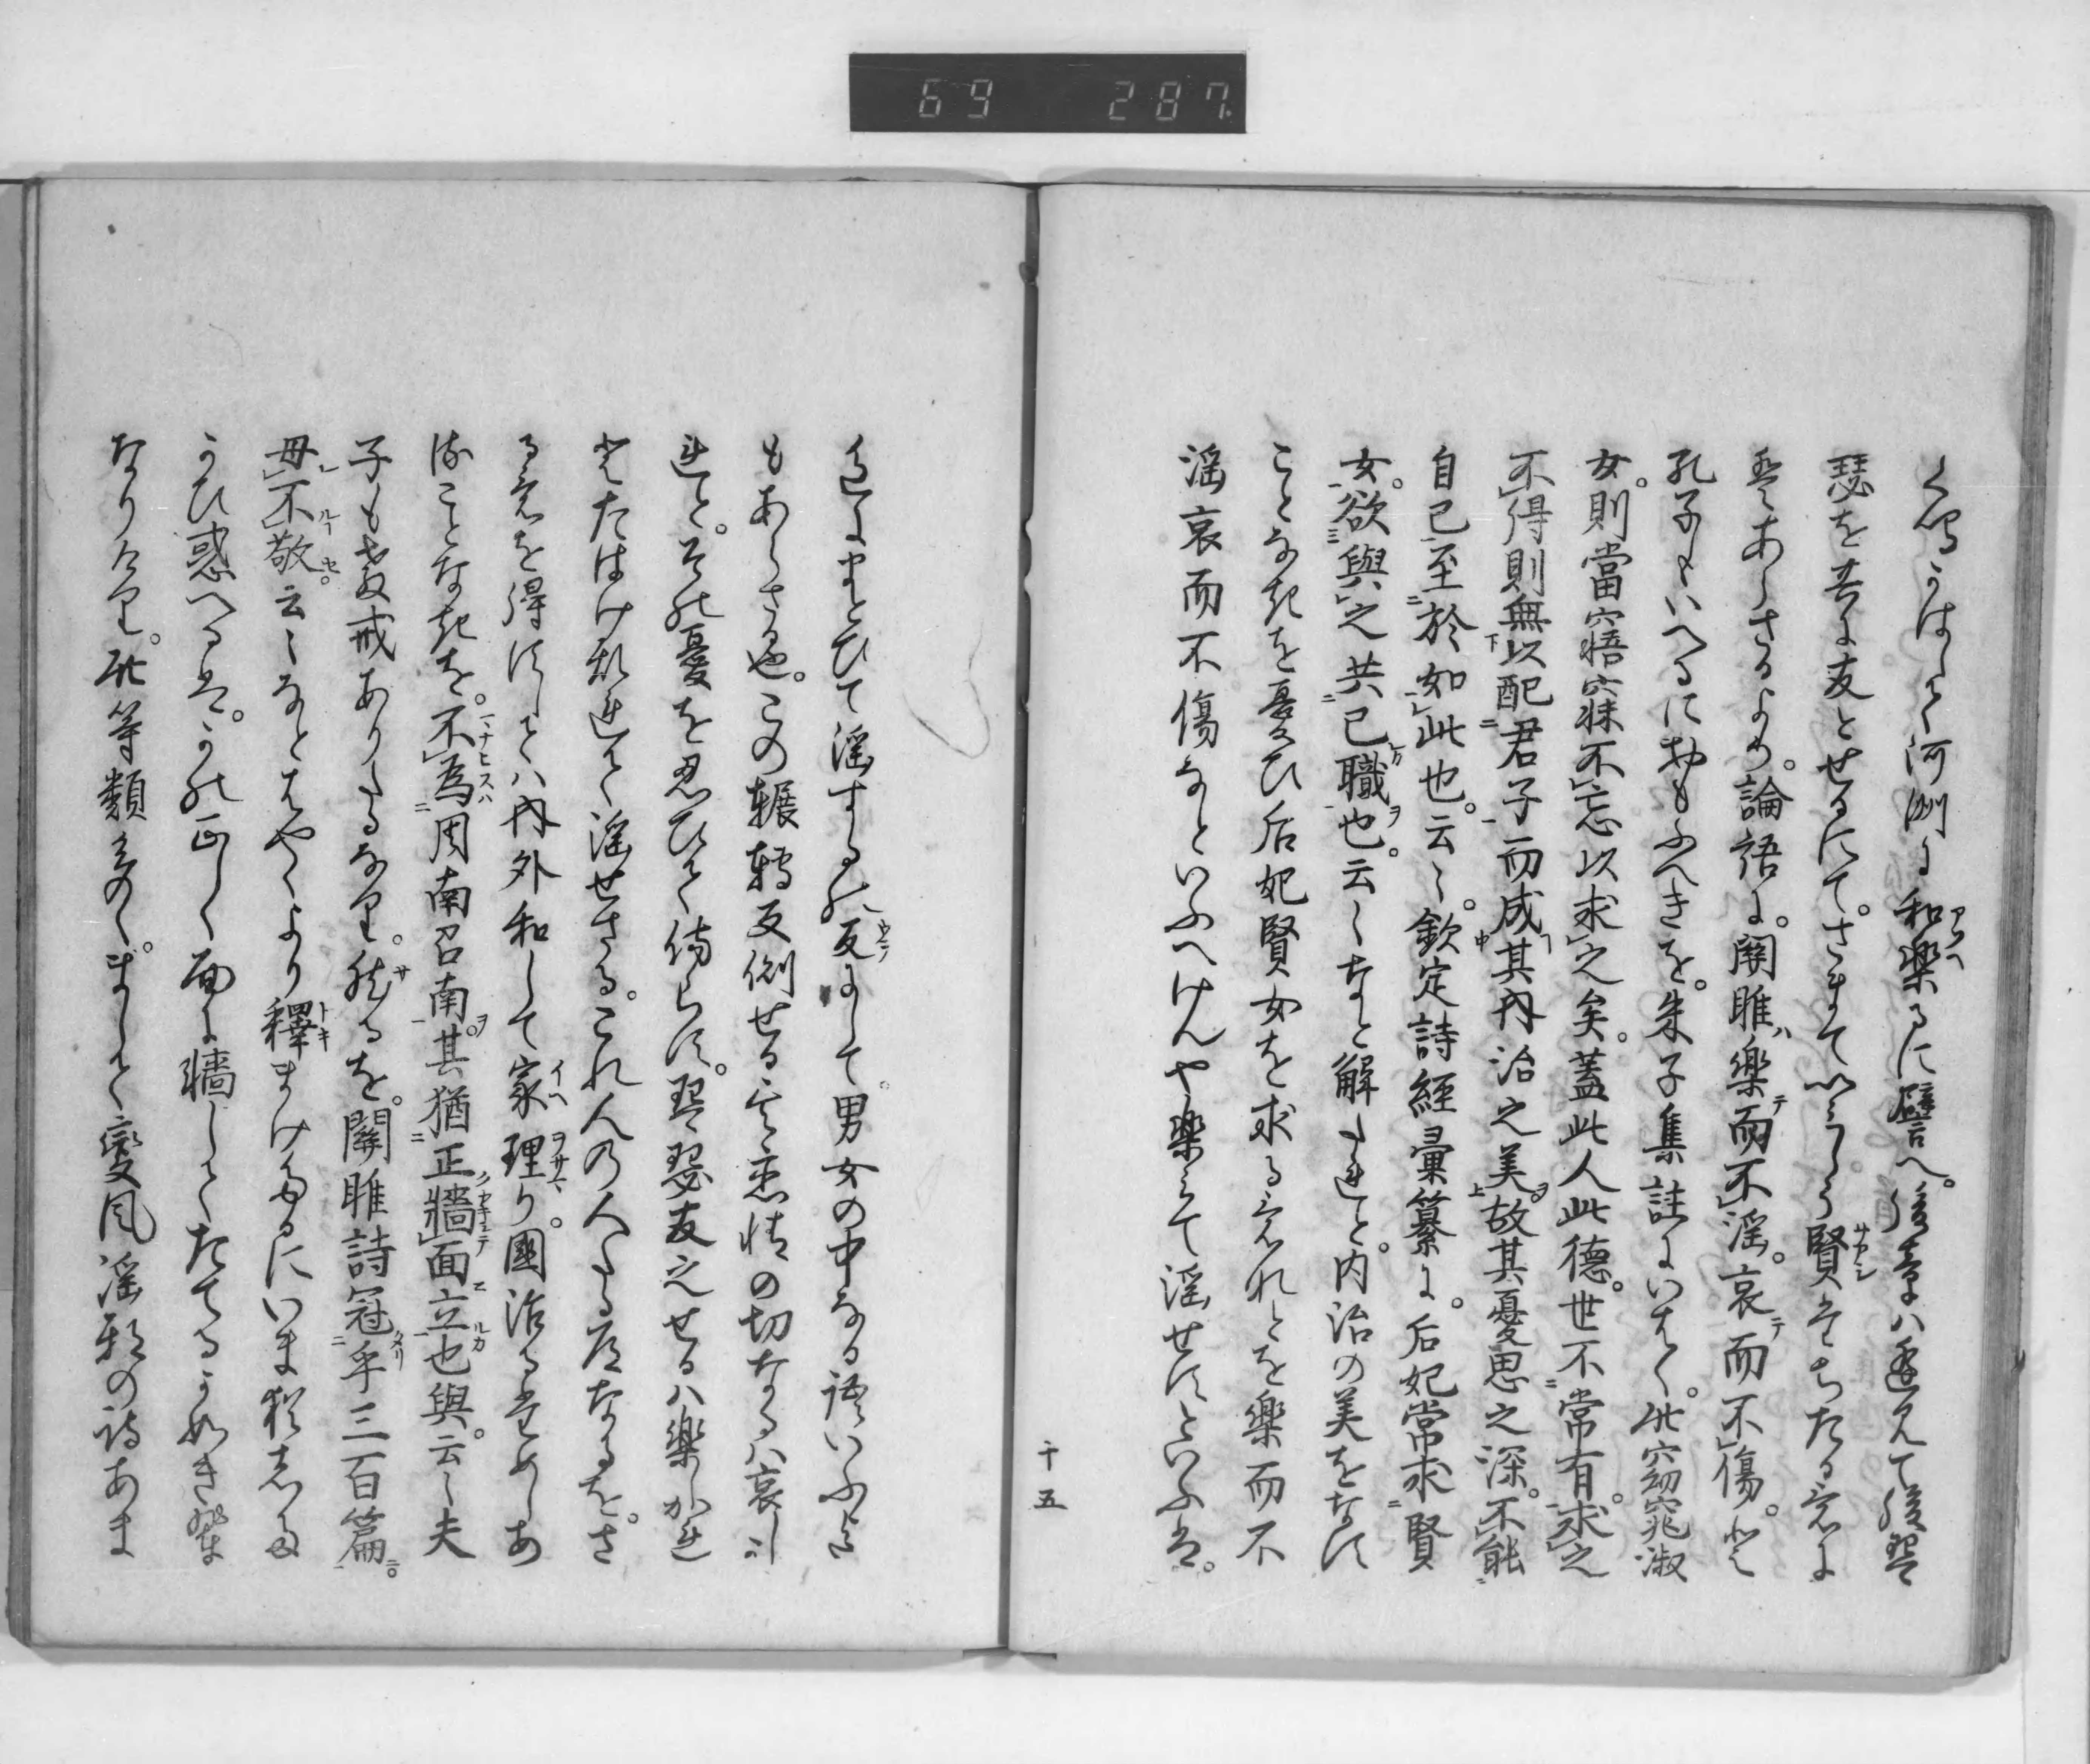 69 287
く鳴かはして河洲に和楽るに譬へ。後章ハ逢見て後琴
瑟を共に友とせるにて。さまて心うるハし賢をそちたる意に
てあらさるより。論語に。関雎ハ楽而不淫。哀而不傷。と
孔子もいへるにおもふへきを。朱子集註にいはく。此窈窕淑
女。則當寤寐不忘以求之矣。蓋此人此徳。世不常有。求之
不得則無以配君子而成其内治之美。故其憂思之深。不能
自已至於如此也。云〻。欽定詩経彙纂に。后妃常求賢
女。欲與之共已職也。云〻なと解たれと。内治の美をなす
ことなきを憂ひ后妃賢女を求る意れとを楽而不
淫哀而不傷なといふへけんや楽みて淫せすといふは。
十五
色にまとひて淫するの反にして。男女の中なる語いふ
もあらさる也。この輾轉反側せる意恋情の切なるハ哀し
けれと。その憂を忍ひて傷らす。琴瑟友之せるハ楽しかれ
とたはけ乱れて淫せさる。これ人の人たる道なるを。さ
る意を得すしてハ内外和して家理り。國治るためしあ
ることなきを。不為周南召南。其猶正牆面立也與。云〻夫
子も教戒ありたるなり。然るを。關雎詩冠乎三百篇。
毋不敬云〻なとはやくより釋まけたるにいま猶したか
うひ惑へるは。かの正しく面に牆してたてるか如き輩
なりけり。此等類多の〻。まして変風淫乱の詩あま